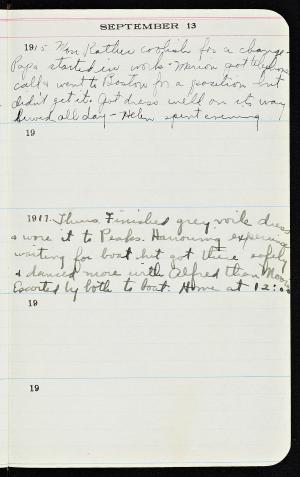 SEPTEMBER 13
1915 Mon Rather coolish for a change -
Papa started in work - Marion got telephone
call & went to Boston for a position but
didn't get it. Got dress well on its way
Sewed all day - Helen spent evening
19
1917. Thurs. Finished grey voile dress
& wore it to Peaks. Harrowing experience
waiting for boat but got there safely
& danced more with Alfred than
Escorted by both to boat. Home at 12:00
19
19